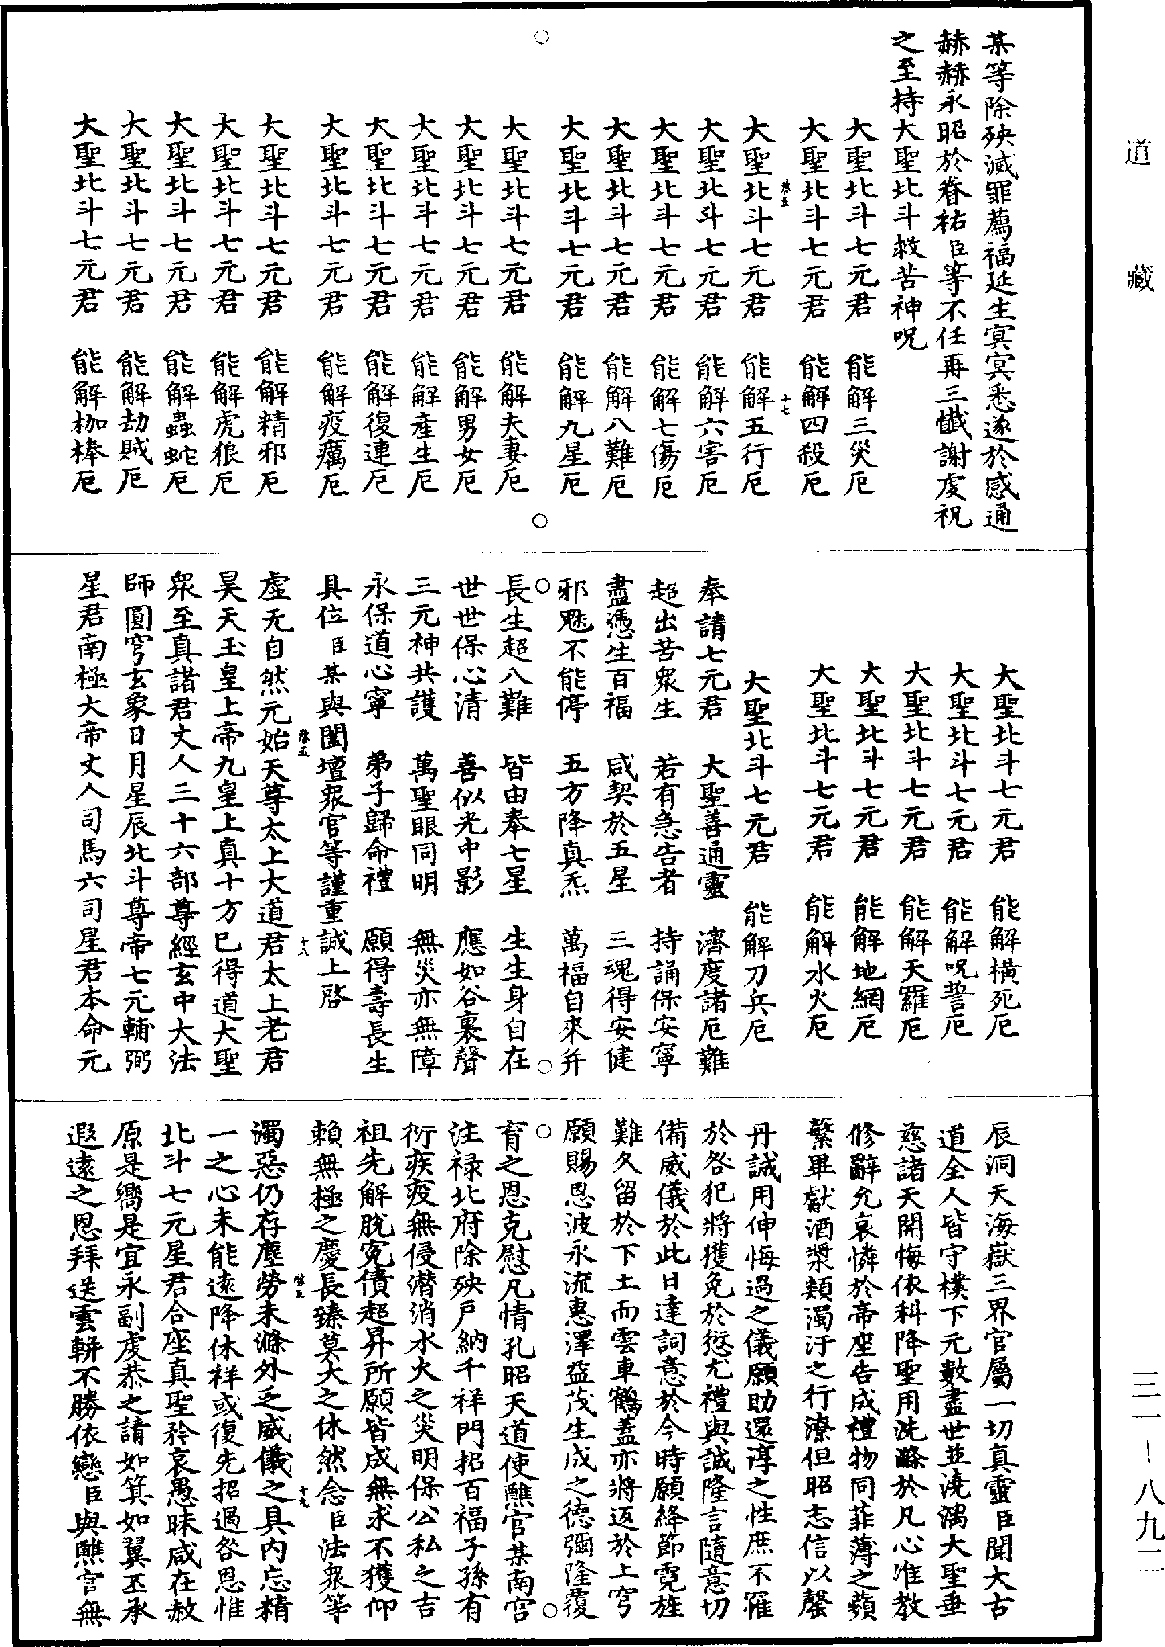 道藏
三一—八九一
某等除殃滅罪薦福延生冥冥悉遂於感通
赫赫永昭於眷祐臣等不任再三懺謝虔祝
之至持大聖北斗救苦神呪
大聖北斗七元君 能解三災厄
大聖北斗七元君 能解四殺厄
大聖北斗七元君 能解五行厄
大聖北斗七元君 能解六害厄
大聖北斗七元君 能解七傷厄
大聖北斗七元君 能解八難厄
大聖北斗七元君 能解九星厄
大聖北斗七元君 能解夫妻厄
大聖北斗七元君 能解男女厄
大聖北斗七元君 能解產生厄
大聖北斗七元君 能解復連厄
大聖北斗七元君 能解疫癘厄
大聖北斗七元君 能解精邪厄
大聖北斗七元君 能解虎狼厄
大聖北斗七元君 能解蟲蛇厄
大聖北斗七元君 能解劫賊厄
大聖北斗七元君 能解枷棒厄
大聖北斗七元君 能解橫死厄
大聖北斗七元君 能解呪誓厄
大聖北斗七元君 能解天羅厄
大聖北斗七元君 能解地網厄
大聖北斗七元君 能解水火厄
大聖北斗七元君 能解刀兵厄
奉請七元君 大聖善通靈 濟度諸厄難
超出苦眾生 若有急告者 持誦保安寧
盡憑生百福 咸契於五星 三魂得安健
邪魅不能停 五方降真炁 萬福自來并
長生超八難 皆由奉七星 生生身自在
世世保心清 善似光中影 應如谷裏聲
三元神共護 萬聖眼同明 無災亦無障
永保道心寧 弟子歸命禮 願得壽長生
具位臣某與闔壇眾官等謹重誠上啓
虛无自然元始天尊太上大道君太上老君
昊天玉皇上帝九皇上真十方已得道大聖
眾至真諸君丈人三十六部尊經玄中大法
師圓穹玄象日月星辰北斗尊帝七元輔弼
星君南極大帝丈人司馬六司星君本命元
辰洞天海嶽三界官屬一切真靈臣聞大古
道全人皆守樸下元數盡世並澆漓大聖垂
慈諸天開悔依科降聖用洗滌於凡心准教
修辭允哀憐於帝座告成禮物同菲薄之蘋
蘩畢獻酒漿類濁汙之行潦但昭志信以罄
丹誠用伸悔過之儀願助還淳之性庶不罹
於咎犯將獲免於愆尤禮與誠隆言隨意切
備威儀於此日達詞意於今時願絳節霓旌
難久留於下土而雲車鶴蓋亦將返於上穹
願賜恩波永流惠澤益茂生成之德彌隆覆
育之恩克慰凡情孔昭天道使醮官某南宮
注祿北府除殃戶納千祥門招百福子孫有
衍疾疫無侵潛消水火之災明保公私之吉
祖先解脫冤債超昇所願皆成無求不獲仰
賴無極之慶長臻莫大之休然念臣法眾等
濁惡仍存塵勞未滌外乏威儀之具內忘精
一之心未能遠降休祥或復先招過咎恩惟
北斗七元星君合座真聖矜哀愚昧咸在赦
原是嚮是宜永副虔恭之請如箕如翼丕承
遐遠之恩拜送雲輧不勝依戀臣與醮官無